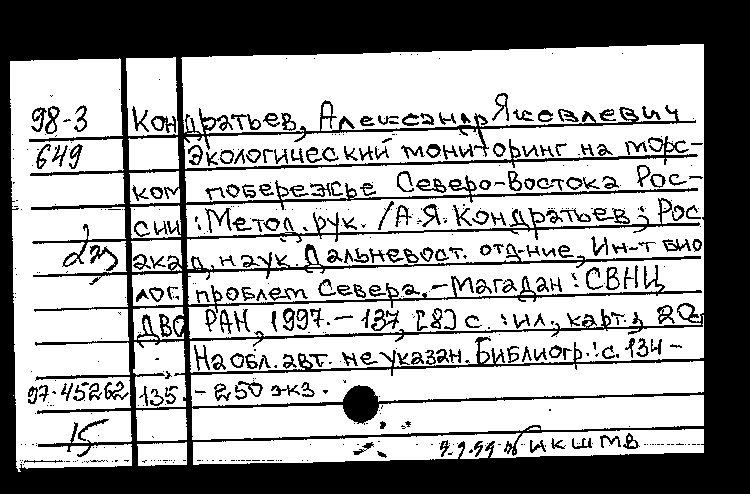 98-3 Кондратьев, Александр Яковлевич
649 Экологический мониторинг на морс-
ком побережье Северо-Востока Рос-
сии : Метод. рук. / А.Я. Кондратьев ; Рос.
акад. наук. Дальневост. отд-ние, Ин-т био
лог. проблем Севера. - Магадан : СВНЦ
ДВО РАН, 1997. - 137, [8] с. : ил., карт. ; 20
На обл. авт. не указан. Библиогр.: с. 134 -
97-45262 135. - 250 экз.
15